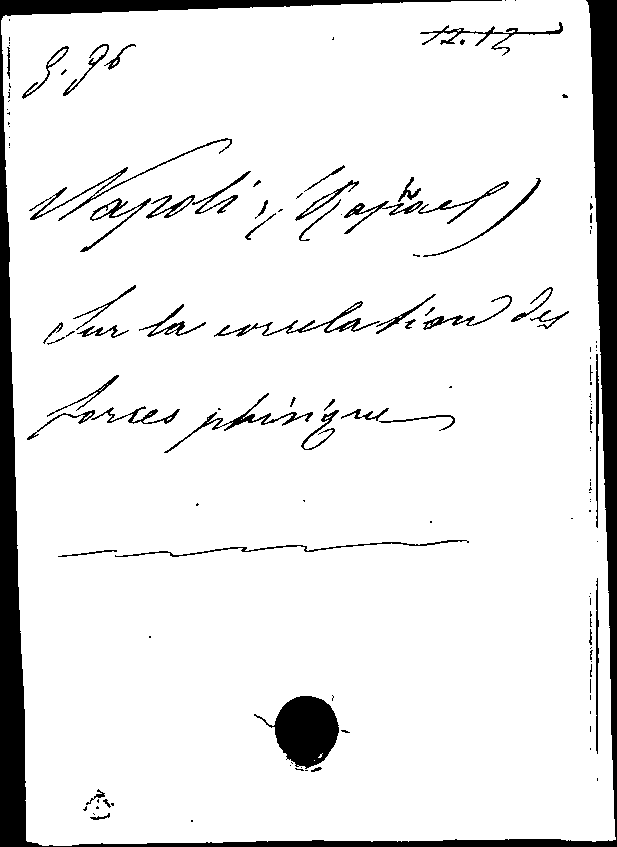 g. 96
12.12
Napoli, (Raphael)
Sur la correlation des
forces phisique